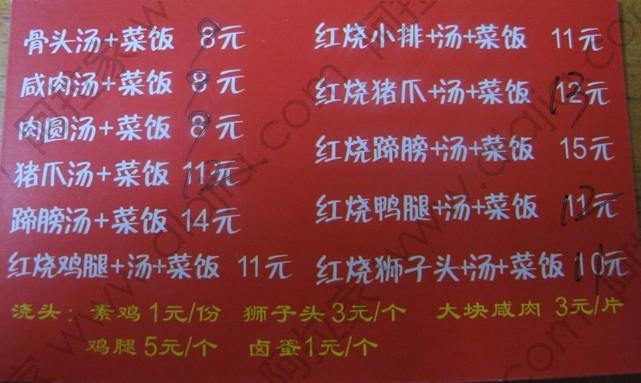 骨头汤+菜饭 8元
咸肉汤+菜饭 8元
肉圆汤+菜饭 8元
猪爪汤+菜饭 11元
蹄膀汤+菜饭 14元
红烧鸡腿+汤+菜饭 11元
红烧小排+汤+菜饭 11元
红烧猪爪+汤+菜饭 12元
红烧蹄膀+汤+菜饭 15元
红烧鸭腿+汤+菜饭 11元
红烧狮子头+汤+菜饭 10元
浇头: 素鸡1元/份 狮子头3元/个 大块咸肉 3元/片
鸡腿5元/个 卤蛋1元/个